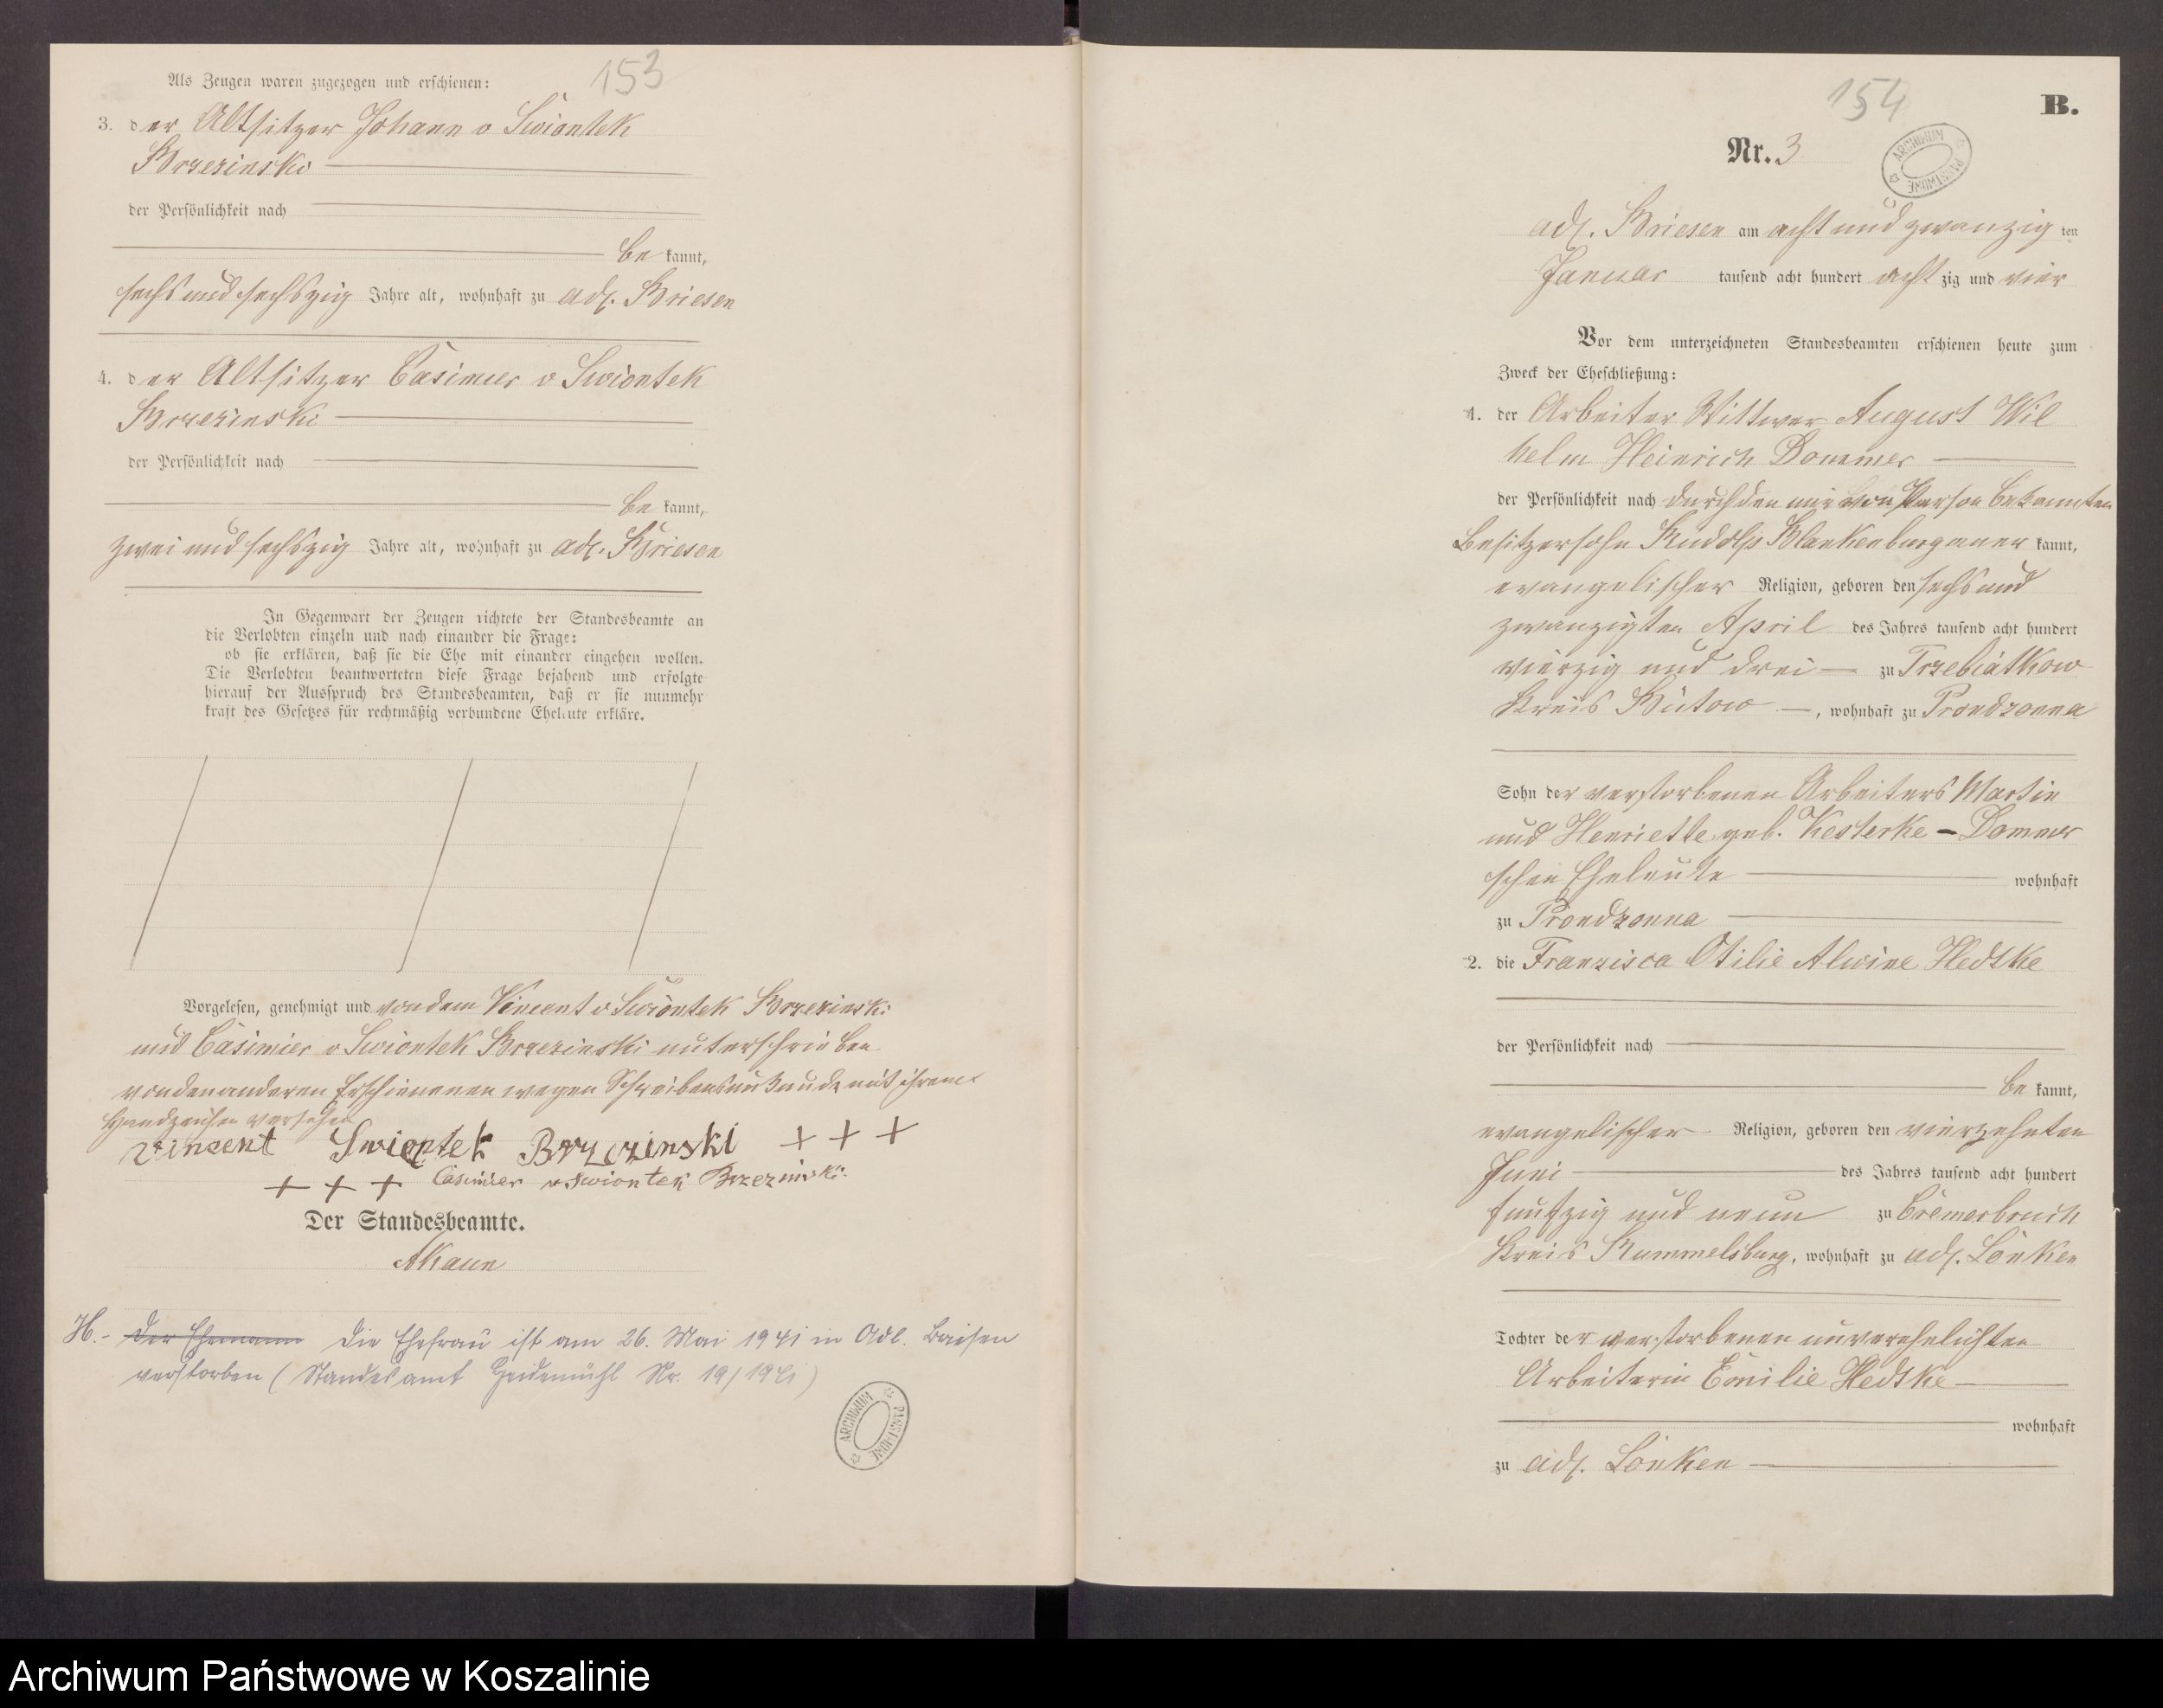 153
Als Zeugen waren zugezogen und erschienen:
3. der Altsitzer Johann v Swiontek
Brzezinski
der Persönlichkeit nach
be kannt,
sechs und sechszig Jahre alt, wohnhaft zu adl. Briesen
4. der Altsitzer Casimier v Swiontek
Brzezinski
der Persönlichkeit nach
be kannt,
zwei und sechszig Jahre alt, wohnhaft zu adl. Briesen
In Gegenwart der Zeugen richtete der Standesbeamte an
die Verlobten einzeln und nach einander die Frage:
ob sie erklären, daß sie die Ehe mit einander eingehen wollen.
Die Verlobten beantworteten diese Frage bejahend und erfolgte
hierauf der Ausspruch des Standesbeamten, daß er sie nunmehr
kraft des Gesetzes für rechtmäßig verbundene Eheleute erkläre.
Vorgelesen, genehmigt und von dem Vincent v Swiontek Brzezinski
und Casimier v Swiontek Brzezinski unterschrieben
von den anderen Erschienenen wegen Schreibensunkunde mit ihrem
Handzeichen versehen
Vincent Swiontek Brzezinski + + +
+ + + Casimier v Swiontek Brzezinski
Der Standesbeamte.
H.- Der Ehemann Die Ehefrau ist am 26. Mai 1941 in Adl. Briesen
verstorben (Standesamt Heidemühl Nr. 19/1941)
ARCHIWUM PAŃSTWOWE
154
B.
Nr. 3
ARCHIWUM PAŃSTWOWE
adl. Briesen am acht und zwanzig ten
Januar tausend acht hundert acht zig und vier
Vor dem unterzeichneten Standesbeamten erschienen heute zum
Zweck der Eheschließung:
1. der Arbeiter Wittwer August Wil
helm Heinrich Dommer
der Persönlichkeit nach durch den mir von Person bekannten
Besitzersohn Rudolf Blankenburg aner kannt,
evangelischer Religion, geboren den sechs und
zwanzigten April des Jahres tausend acht hundert
vierzig und drei zu Trzebiatkow
Kreis Bütow, wohnhaft zu Prondzonna
Sohn der verstorbenen Arbeiters Martin
und Henriette geb. Kesterke - Dommer
schen Eheleute wohnhaft
zu Prondzonna
2. die Franzisca Otilie Alwine Hedtke
der Persönlichkeit nach
be kannt,
evangelischer Religion, geboren den vierzehnten
Juni des Jahres tausend acht hundert
funfzig und neun zu Cremerbruch
Kreis Rummelsburg, wohnhaft zu adl. Lonken
Tochter der verstorbenen unverehelichten
Arbeiterin Emilie Hedtke
wohnhaft
zu adl. Lonken
Archiwum Państwowe w Koszalinie